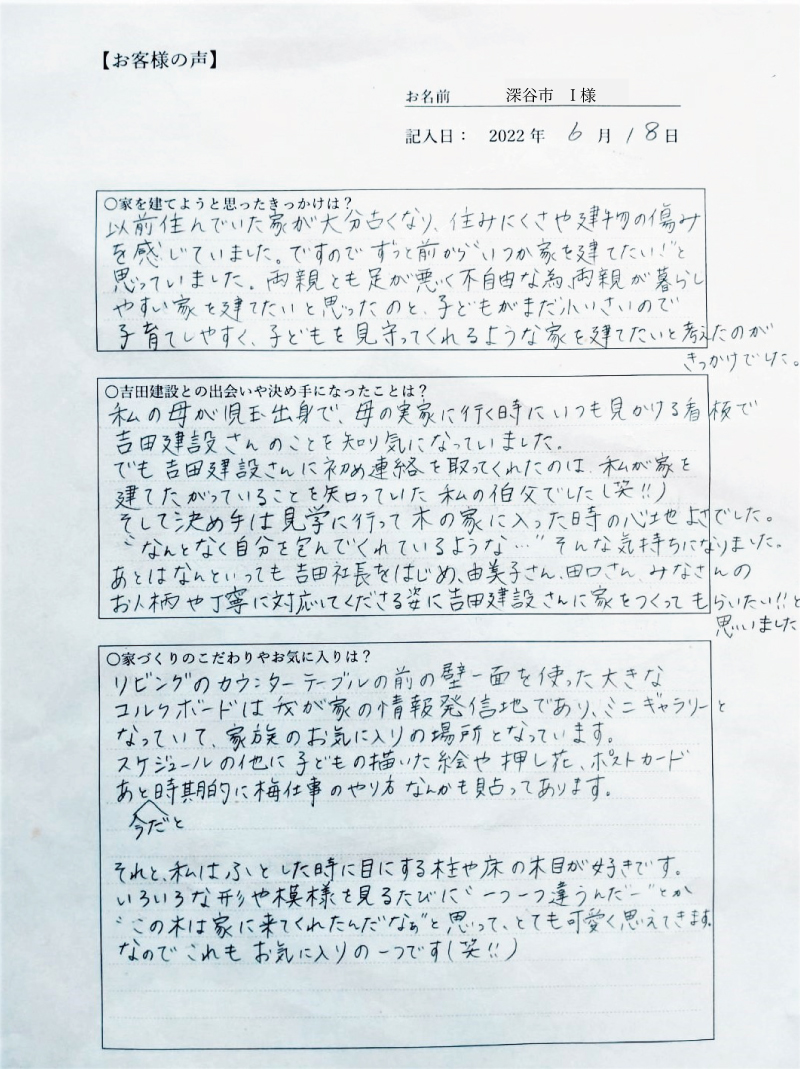 【お客様の声】
お名前 深谷市 I様
記入日： 2022年 6月 18日
○家を建てようと思ったきっかけは？
以前住んでいた家が大分古くなり、住みにくさや建物の傷み
を感じていました。ですので ずっと前から“いつか家を建てたい！”と
思っていました。両親とも足が悪く不自由な為、両親が暮らし
やすい家を建てたいと思ったのと、子どもがまだ小いさいので
子育てしやすく、子どもを見守ってくれるような家を建てたいと考えたのが
きっかけでした。
○吉田建設との出会いや決め手になったことは？
私の母が児玉出身で、母の実家に行く時にいつも見かける看板で
吉田建設さんのことを知り気になっていました。
でも吉田建設さんに初め連絡を取ってくれたのは、私が家を
建てたがっていることを知っていた私の伯父でした（笑!!）
そして決め手は見学に行って木の家に入った時の心地よさでした。
“なんとなく自分を包んでくれているような…”そんな気持ちになりました。
あとはなんといっても吉田社長をはじめ、由美子さん、田口さん、みなさんの
お人柄や丁寧に対応してくださる姿に吉田建設さんに家をつくってもらいたい!!と
思いました
○家づくりのこだわりやお気に入りは？
リビングのカウンターテーブルの前の壁一面を使った大きな
コルクボードは我が家の情報発信地であり、ミニギャラリーと
なっていて、家族のお気に入りの場所となっています。
スケジュールの他に子どもの描いた絵や押し花、ポストカード
あと時期的に梅仕事のやり方なんかも貼ってあります。
今だと
それと、私はふとした時に目にする柱や床の木目が好きです。
いろいろな形や模様を見るたびに“一つ一つ違うんだー”とか
“この木は家に来てくれたんだなぁ”と思って、とても可愛く思えてきます。
なのでこれもお気に入りの一つです（笑!!）